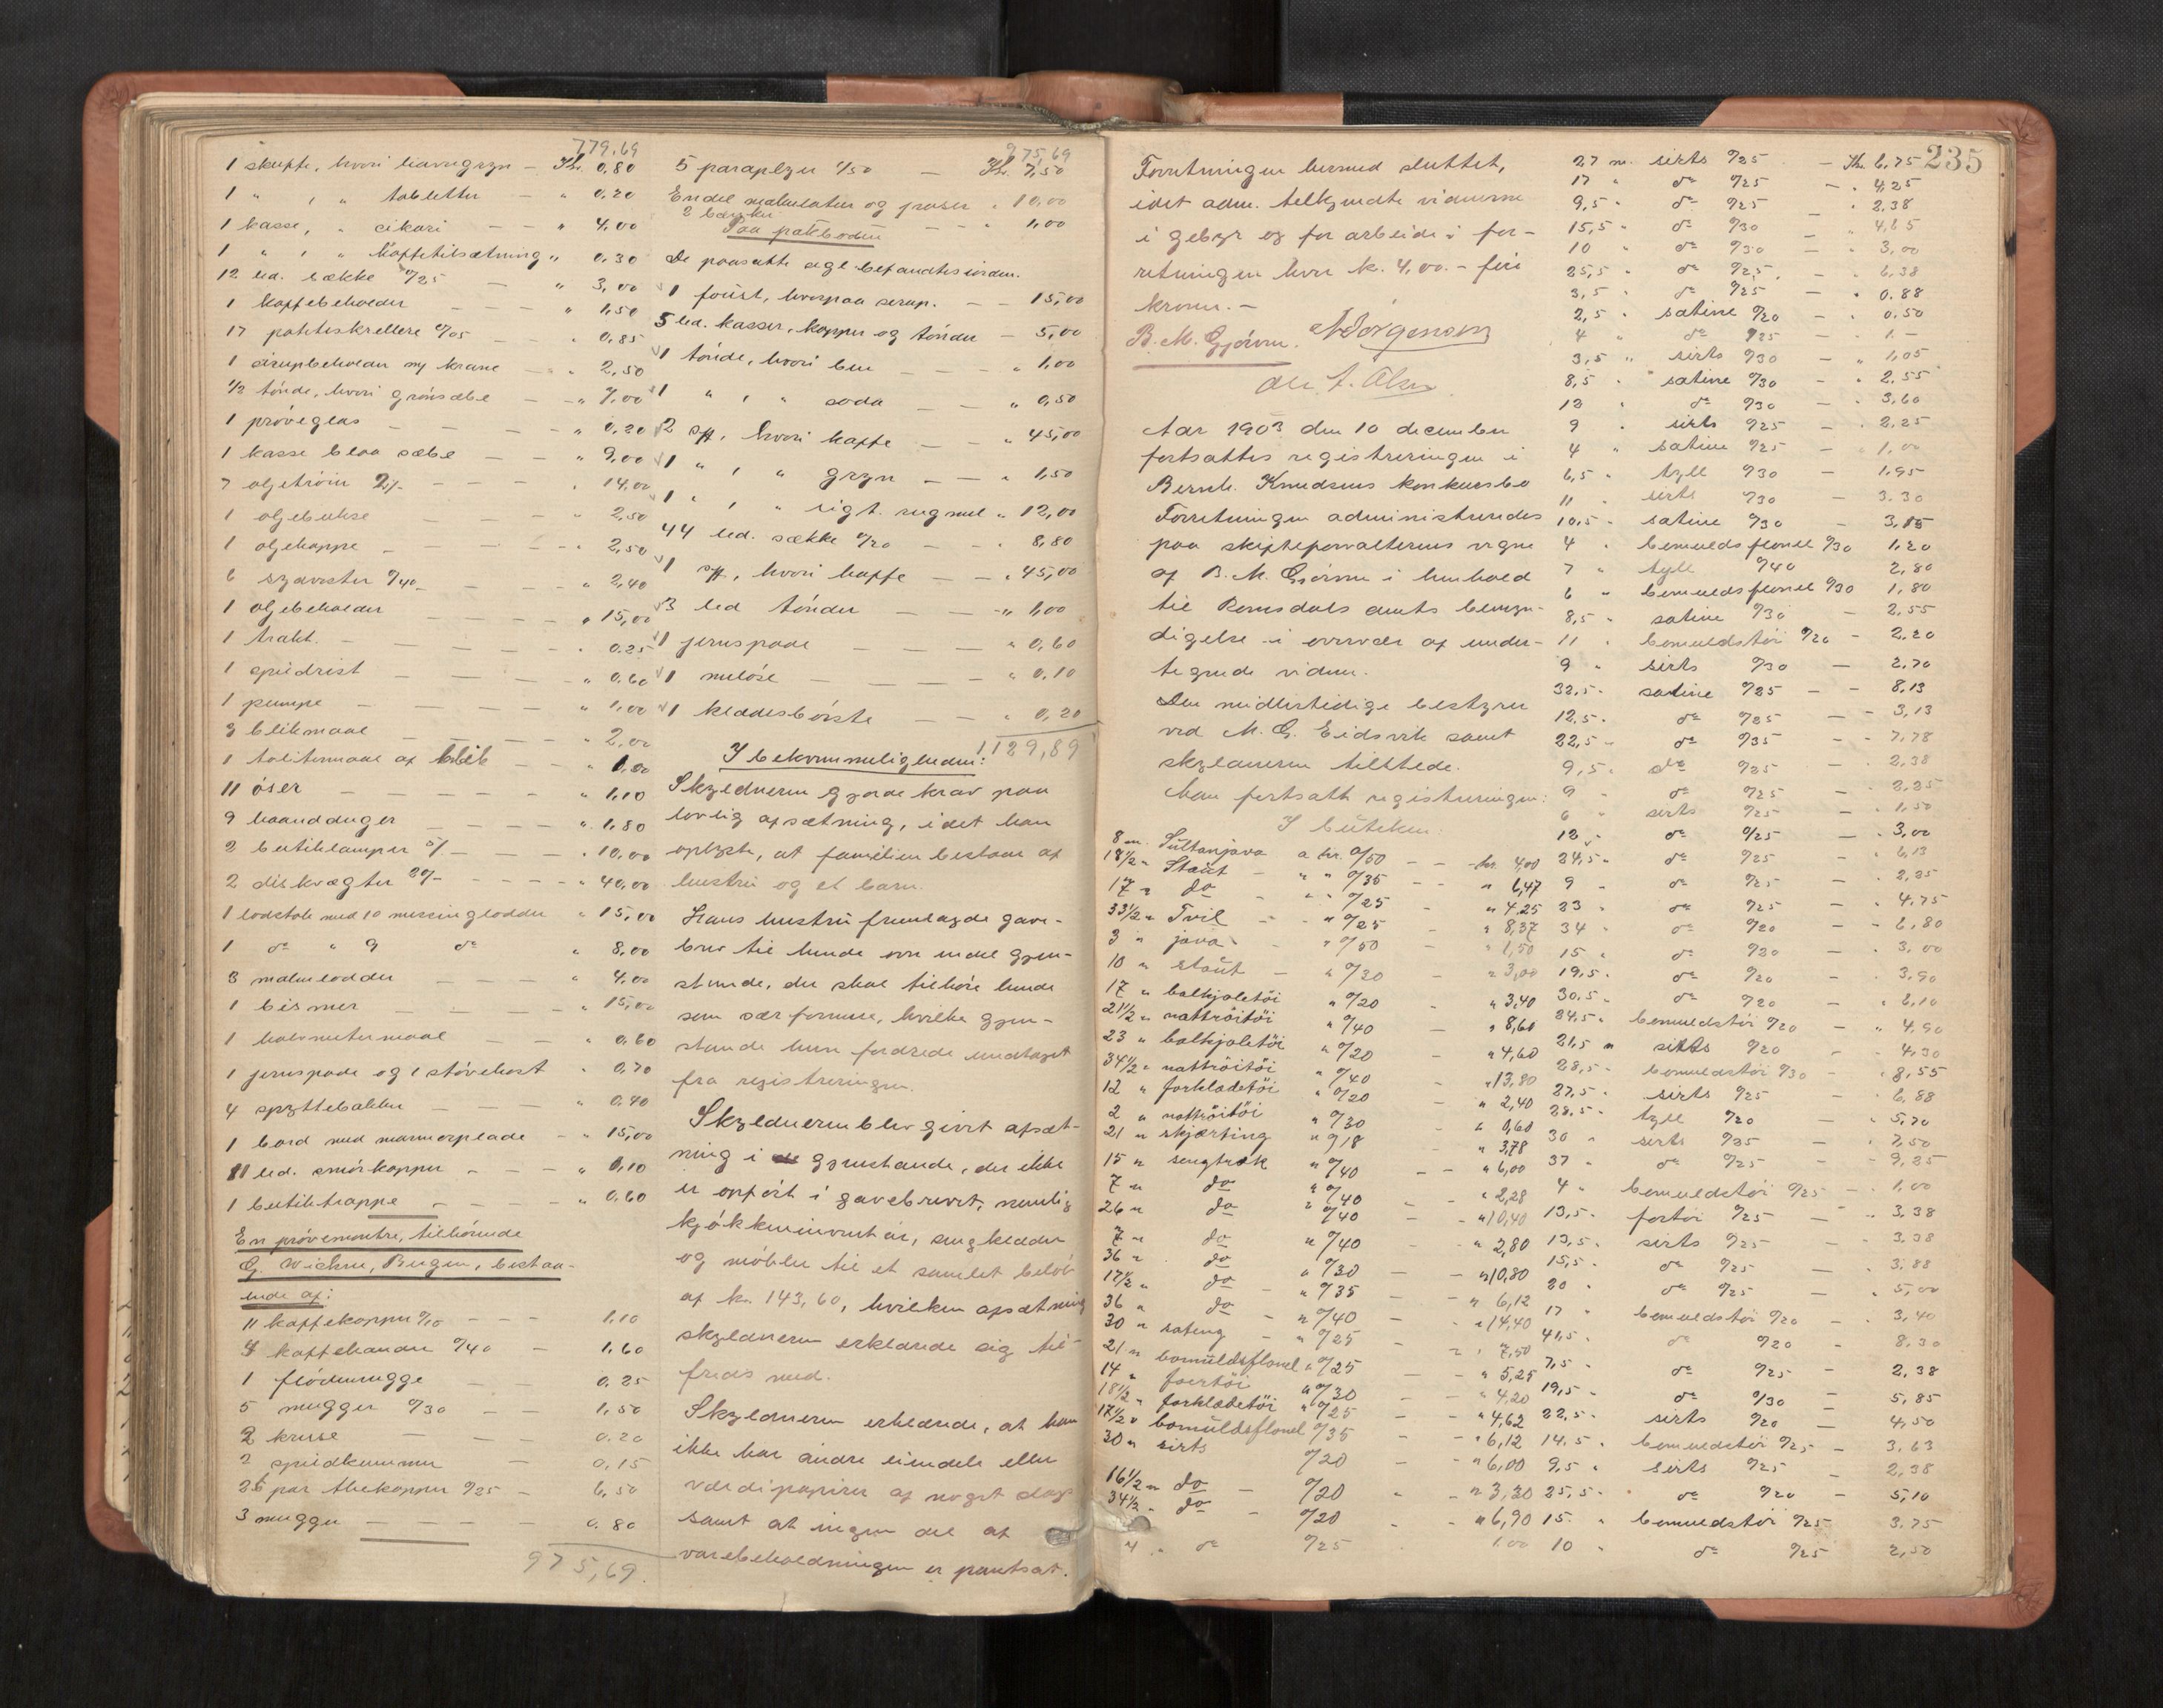 779,69
1 skuffe, hvori havregryn — Kr. 0,80
1 " , " tabletter — " 0,20
1 kasse, " cikori — — " 4,00
1 " , " kaffetilsætning " 0,30
12 led. sække 0/25 — " 3,00
1 kaffebeholder — — " 1,50
17 potetskrellere 0/05 — — " 0,85
1 sirupbeholder m/ krane — " 2,50
1/2 tønde, hvori grønsæbe — — " 7,00
1 prøveglas — — — " 0,20
1 kasse blaa sæbe — — " 9,00
7 oljetrøier 2/- — — — " 14,00
1 oljebukse — — — " 2,50
1 oljekappe — — — " 2,50
6 sydvester 0/40 — — " 2,40
1 oljebeholder — — — " 15,00
1 trakt. — — — — " 0.25
1 spiidrist — — — " 0.60
1 pumpe — — — — " 1,00
3 blikmaal — — — " 2,00
1 tolitermaal af blik — — " 1,00
11 øser — — — — " 1,10
9 haandduger — — — " 1,80
2 butiklamper 5/- — — " 10,00
2 diskvægter 20/- — — — " 40,00
1 lodstok med 10 messinglodder " 15,00
1 do " 9 do " 8,00
3 malmlodder — — — " 4,00
1 bismer — — — — " 15,00
1 halvmetermaal — — " 0,60
1 jernspade og 1 støvekost " 0,70
4 spyttebakker — — — " 0,40
1 bord med marmorplade — " 15,00
11 led. smørkopper — — — " 1,10
1 butiktrappe — — — " 0,60
En prøvemontre, tilhørende
G. Wiehn, Bergen, bestaa-
ende af:
11 kaffekopper 0/10 — — — 1,10
4 kaffekander 0/40 — 1,60
1 flødemugge — — 0,25
5 mugger 0/30 — — 1,50
2 krusse — — 0.20
2 spiidkummer — 0,15
26 par thekopper 0/25 — 6,50
3 mugger — — — — 0.80
975,69.
975,69
5 paraplyer 1/50 — Kr. 7,50
Endel makulatur og poser " 10,00
2 bænker — — " 1,00
Paa pakboden
De paasatte segl befandtes i orden.
1 foust, hvorpaa sirup. — — 15,00
5 led. kasser, kopper og tønder — 5,00
1 tønde, hvori ben — — " 1,00
1 " , " soda — — " 0,50
2 sk, hvori kaffe — — " 45,00
1 " , " gryn — — " 1,50
1 " , " sigt. rugmel " 12,00
44 led. sække 0/20 — — " 8,80
1 sk, hvori kaffe — — " 45,00
3 led tønder — — — " 1,00
1 jernspade — — — " 0,60
1 meløse — — — " 0,10
1 klædesbørste — — " 0,20
1129,89
I bekvemmeligheden:
Skyldneren gjorde krav paa
lovlig afsætning, idet han
oplyste, at familien bestaar af
hustru og et barn.
Hans hustru fremlagde gave-
brev til hende over endel gjen-
stande, der skal tilhøre hende
som særformue, hvilke gjen-
stande hun fordrede undtaget
fra registreringen.
Skyldneren blev givet afsæt-
ning i gjenstande, der ikke
er opført i gavebrevet, nemlig
kjøkkeninventar, sengklæder
og møbler til et samlet beløb
af kr. 143,60, hvilken afsætning
skyldneren erklærede sig til-
freds med.
Skyldneren erklærede, at han
ikke har andre eiendele eller
værdipapirer af noget slags
samt at ingen del af
varebeholdningen er pantsat.
235
Forretningen hermed sluttet,
idet adm. tilkjendte vidnerne
i gebyr og for arbeide i for-
retningen hver k. 4,00. – fire
kroner. –
B. M. Gjørvn. N Jørgensen
Ole A. Olsen
Aar 1903 den 10 december
fortsattes registreringen i
Bernh. Knudsens konkursbo
Forretningen administreredes
paa skifteforvalterens vegne
af B. M. Gjørvn i henhold
til Romsdals amts bemyn-
digelse i overvær af under-
tegnede vidner.
Den midlertidige bestyrer
ved M. G. Eidsvik samt
skyldneren tilstede.
Man fortsatte registreringen:
I butiken:
8 m. Sultanjava a kr. 0/50 — — kr. 4,00
18 1/2 " Stout — " " 0/35 — — " 6,47
17 " do " " 0/25 — " 4,25
33 1/2 " Tvil — " 0/25 — " 8,37
3 " java — " 0/50 — " 1,50
10 " stout — " 0/30 — " 3,00
17 " balkjoletöi " 0/20 — " 3,40
21 1/2 " nattröitöi " 0/40 — " 8,60
23 " balkjoletöi " 0/20 — " 4,60
34 1/2 " nattröitöi " 0/40 — " 13,80
12 " forklædetöi " 0/20 — " 2,40
2 " nattröitöi " 0/30 — " 0,60
21 " skjærting " 0/18 — " 3,78
15 " sengtræk " 0/40 — — " 6,00
7 " do " 0/40 — " 2,28
26 " do " 0/40 — — " 10,40
7 " do " 0/40 — " 2,80
36 " do " 0/30 — — " 10,80
17 1/2 " do " 0/35 — " 6,12
36 " do — " 0/40 — " 14,40
30 " sateng — " 0/25 — " 7,50
21 " bomüldsflonel " 0/25 — " 5,25
14 " foertöi " 0/30 — — " 4,20
18 1/2 " forklædetöi " 0/25 — — " 4,62
17 1/2 " bomüldsflonel 0/35 — — " 6,12
30 " sirts 0/20 — — " 6,00
16 1/2 " do — 0/20 — " 3,30
34 1/2 " do — 0/20 — — " 6,90
4 " do 0/25 1.00
27 m. sirts 0/25 — Kr. 6,75
17 " do 0/25 — " 4,25
9,5 " do 0/25 — " 2.38
15,5 " do 0/30 — " 4,65
10 " do 0/30 — " 3,00
25,5 " do 0/25 — " 6,38
3,5 " do 0/25 — " 0.88
2,5 " satine 0/20 — " 0.50
4 " do 0/25 — " 1.—
3,5 " sirts 0/30 — " 1,05
8,5 " satine 0/30 — " 2,55
12 " do 0/30 — " 3,60
9 " sirts 0/25 — " 2,25
4 " satine 0/25 — " 1,00
6,5 " tyll 0/30 — 1,95
11 " sirts 0/30 — 3.30
10,5 " satine 0/30 — 3,15
4 " bomuldsflonel 0/30 1,20
7 " tyll 0/40 2,80
6 " bomuldsflonel 0/30 1,80
8,5 " satine 0/30 — 2,55
11 " bomuldstöi 0/20 — 2,20
9 " sirts 0/30 — 2,70
32,5 " satine 0/25 — — 8,13
12,5 " do 0/25 — — 3,13
22,5 " do 0/35 — — 7,78
9,5 " do 0/25 — " 2,38
9 " do 0/25 — " 2,25
6 " sirts 0/25 — " 1,50
12 " do 0/25 — " 3,00
24,5 " do 0/25 — " 6,13
9 " do 0/25 — " 2,25
23 " do 0/25 — " 4,75
34 " do 0/20 — — 6,80
15 " do 0/20 — " 3,00
19,5 " do 0/20 — " 3,90
30,5 " do 0/20 — " 6,10
24,5 " bomuldstöi 0/20 — " 4,90
21,5 " sirts 0/20 — " 4,30
28,5 " bomuldstöi 0/30 — " 8,55
27,5 " sirts 0/25 — " 6,88
28,5 " tyll 0/20 — " 5,70
30 " sirts 0/25 — " 7,50
37 " do 0/25 — " 9,25
4 " bomuldstöi 0/25 — " 1,00
13,5 " fortöi 0/25 — " 3,38
13,5 " sirts 0/25 — " 3,38
15,5 " do 0/25 — " 3,88
20 " do 0/25 — " 5,00
17 " bomuldstöi 0/20 — " 3,40
41,5 " do 0/20 — 8,30
7,5 " do 0/25 — 2,38
19,5 " do 0/30 — 5,85
22,5 " sirts 0/20 — 4,50
14.5 " bomuldstöi 0/25 — 3,63
9,5 " sirts 0/25 — 2,38
25,5 " do 0/20 — 5,10
15. " bomuldstöi 0/25 3.75
10 " do 0/25 2,50